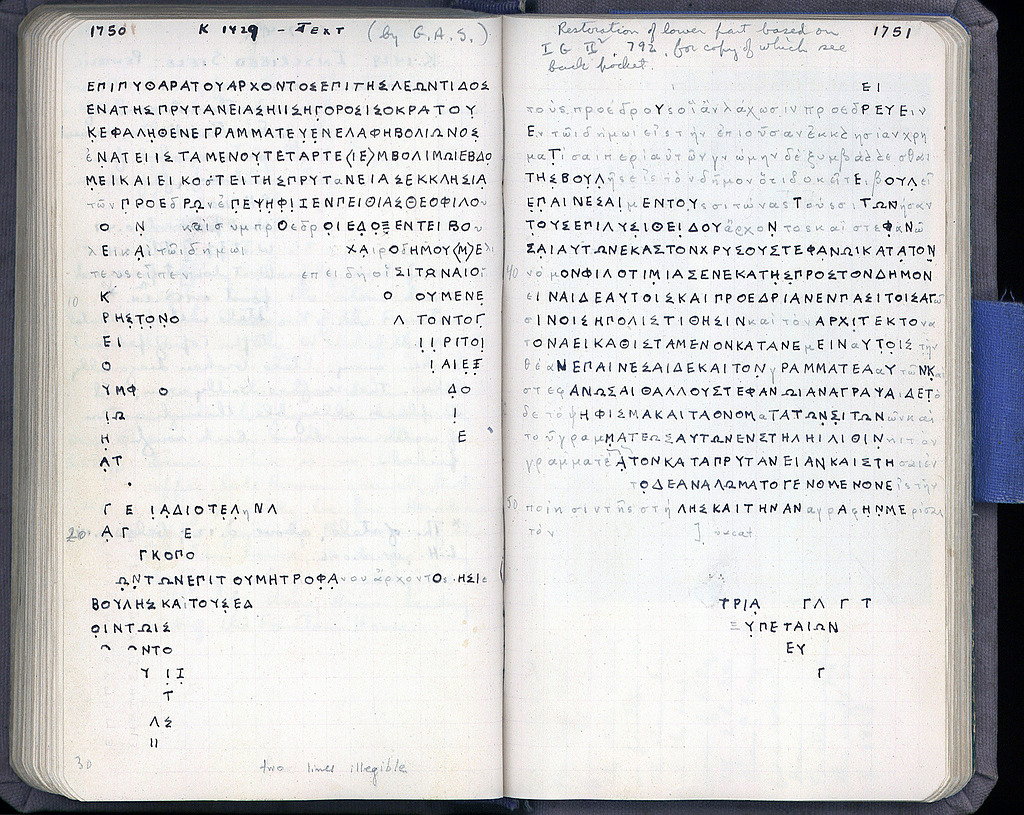 1750 K 1429 - TEXT (by G.A.S.)
ΕΠΙΠΥΘΑΡΑΤΟΥΑΡΧΟΝΤΟΣΕΠΙΤΗΣΛΕΩΝΤΙΔΟΣ
ΕΝΑΤΗΣΠΡΥΤΑΝΕΙΑΣΗΙΙΣΗΓΟΡΟΣΙΣΟΚΡΑΤΟΥ
ΚΕΦΑΛΗΘΕΝΕΓΡΑΜΜΑΤΕΥΕΝΕΛΑΦΗΒΟΛΙΩΝΟΣ
ἐΝΑΤΕΙΙΣΤΑΜΕΝΟΥΤΕΤΑΡΤΕ⟨ΙΕ⟩ΜΒΟΛΙΜΩΙΕΒΔΟ
ΜΕΙΚΑΙΕΙΚΟσΤΕΙΤΗΣΠΡΥΤαΝΕΙΑΣΕΚΚΛΗΣΙΑ
τῶνΠΡΟΕδΡΩνἐΠΕΨΗΦΙΙΕΝΠΕΙΘΙΑΣΘΕΟΦΙΛΟυ
Ο Ν καὶσυμπρΟεδρΟΙΕΔΟΞΕΝΤΕΙΒΟυ
ΛΕΙΑΙτῶιδήμωι ΧΑΙΡΟΔΗΜΟΥ⟨Μ⟩Ελι
τευςεἶπεν ἐπειδὴοἱΣΙΤΩΝΑΙΟΙ
10 Κ Ο ΟΥΜΕΝΕ
ΡΗΣΤΟΝΟ Λ ΤΟΝΤΟΓ
ΕΙ ΙΙΡΙΤΟΙ
Ο ΙΑΙΕΞ
ΥΜΦ Ο ΔΟ
ΙΩ Ι
Η Ε
ΑΤ
Γ Ε ΙΑΔΙΟΤΕΛηΝΛ
20 ΑΓ Ε
ΓΚΟΠΟ
ΩΝΤΩΝΕΠΙΤΟΥΜΗΤΡΟΦΑνουἄρχοντΟς·ΗΣΙε
ΒΟΥΛΗΣΚΑΙΤΟΥΣΕΔ
ΟΙΝΤΩΙΣ
ΝΤΟ
Υ ΙΙ
Τ
ΛΣ
ΙΙ
30 two lines illegible
Restoration of lower part based on 1751
IG II² 792, for copy of which see
back pocket.
ΕΙ
τοὺςπροέδροΥςοἳἂνλάχωσινπροεδΡΕΥΕιν
Εντῶιδήμωιεἰςτὴνἐπιοῦσανἐκκλησίανχρη
μαΤίσαιπερὶαὐτῶνγνώμηνδὲξυμβάλλεσθαι
ΤΗΣΒΟΥΛῆςεἰςτὸνδῆμονὅτιδοκεῖτΕῖβΟΥΛεῖ
ΕΠΑΙΝΕΣΑΙμΕΝΤΟΥςσιτώναςΤοὺςσΙΤΩΝήσαν
ΤΟΥΣΕΠΙΛΥΣΙΘΕΙΔΟΥἄρχοΝτοςκαὶστεΦΑΝῶ
ΣΑΙΑΥΤΩΝΕΚΑΣΤΟΝΧΡΥΣΟΥΣΤΕΦΑΝΩΙΚΑΤΑΤΟΝ
40 νόμΟΝΦΙΛΟΤΙΜΙΑΣΕΝΕΚΑΤΗΣΠΡΟΣΤΟΝΔΗΜΟΝ
εἶΝΑΙΔΕΑΥΤΟΙΣΚΑΙΠΡΟΕΔΡΙΑΝΕΝΠΑΣΙΤΟΙΣΑΓῶ
σΙΝΟΙΣΗΠΟΛΙΣΤΙΘΗΣΙΝκαὶτὸνΑΡΧΙΤΕΚΤΟνα
ΤΟΝΑΕΙΚΑΘΙΣΤΑΜΕΝΟΝΚΑΤΑΝΕμΕΙΝαΥΤΟΙΣτὴν
θέαΝΕΠΑΙΝΕΣΑΙΔΕΚΑΙΤΟΝγΡΑΜΜΑΤΕΑαΥτῶΝΚαὶ
στεφΑΝΩΣΑΙΘΑΛΛΟΥΣΤΕΦΑΝΩΙΑΝΑΓΡΑΨΑΙΔΕΤό
δετὸψΗΦΙΣΜΑΚΑΙΤΑΟΝΟΜαΤΑΤΩΝΣΙΤΩΝωνκαὶ
τοῦγραμΜΑΤΕΩΣΑΥΤΩΝΕΝΣΤΗΛΗΙΛΙΘΙΝηιτον
γραμματέΑΤΟΝΚΑΤΑΠΡΥΤΑΝΕΙΑΝΚΑΙΣΤΗσαιἐν
ΤΟΔΕΑΝΑΛΩΜΑΤΟΓΕΝΟΜΕΝΟΝΕἰςτὴν
50 ποίησιντῆςστήΛΗΣΚΑΙΤΗΝΑΝαγραΦΗΝΜΕρίσαι
τὸν ] vacat
ΤΡΙΑ ΓΛ Γ Τ
ΞΥΠΕΤΑΙΩΝ
ΕΥ
Γ